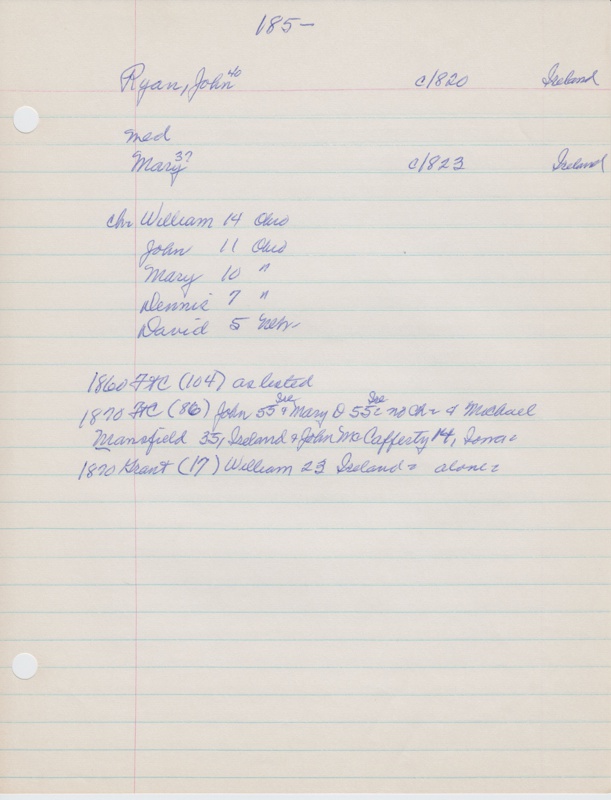 185-
Ryan, John 40 c1820 Ireland
med
Mary 37 c1823 Ireland
chr William 14 Ohio
John 11 Ohio
Mary 10 "
Dennis 7 "
David 5 Nebr
1860 FtC (104) as listed
1870 FtC (86) John 55 Ire & Mary D 55 Ire no Chr & Michael
Mansfield 35, Ireland & John McCafferty 14, Iowa
1870 Grant (17) William 23 Ireland alone